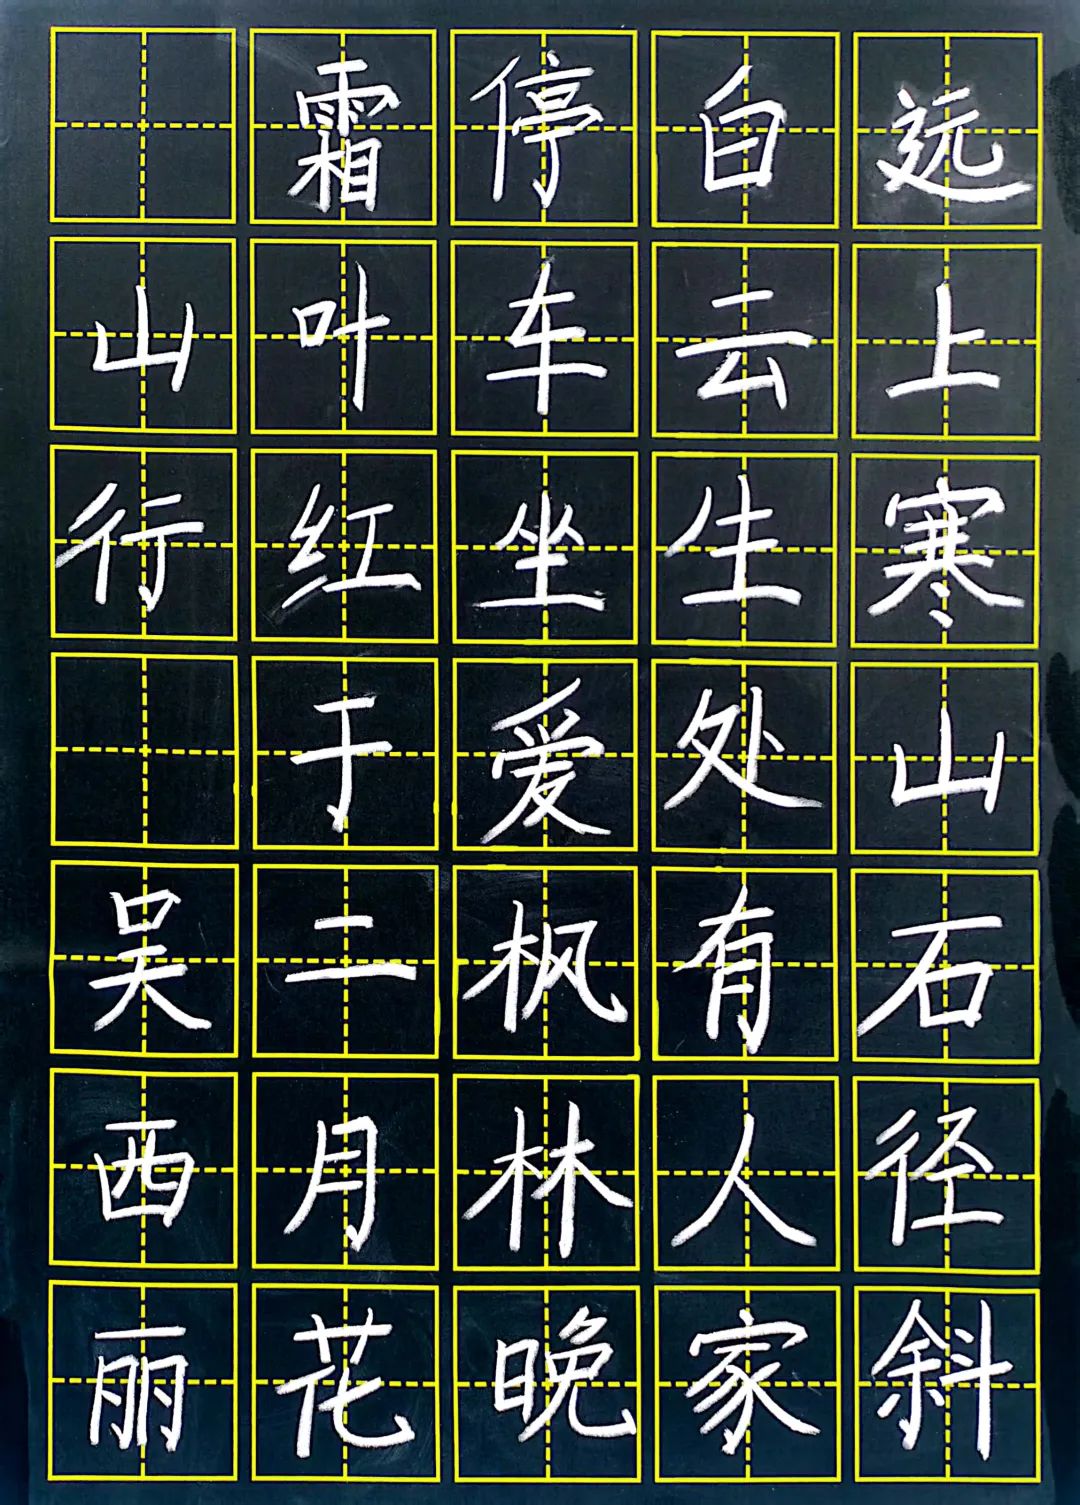 远上寒山石径斜
白云生处有人家
停车坐爱枫林晚
霜叶红于二月花
山行 吴西丽